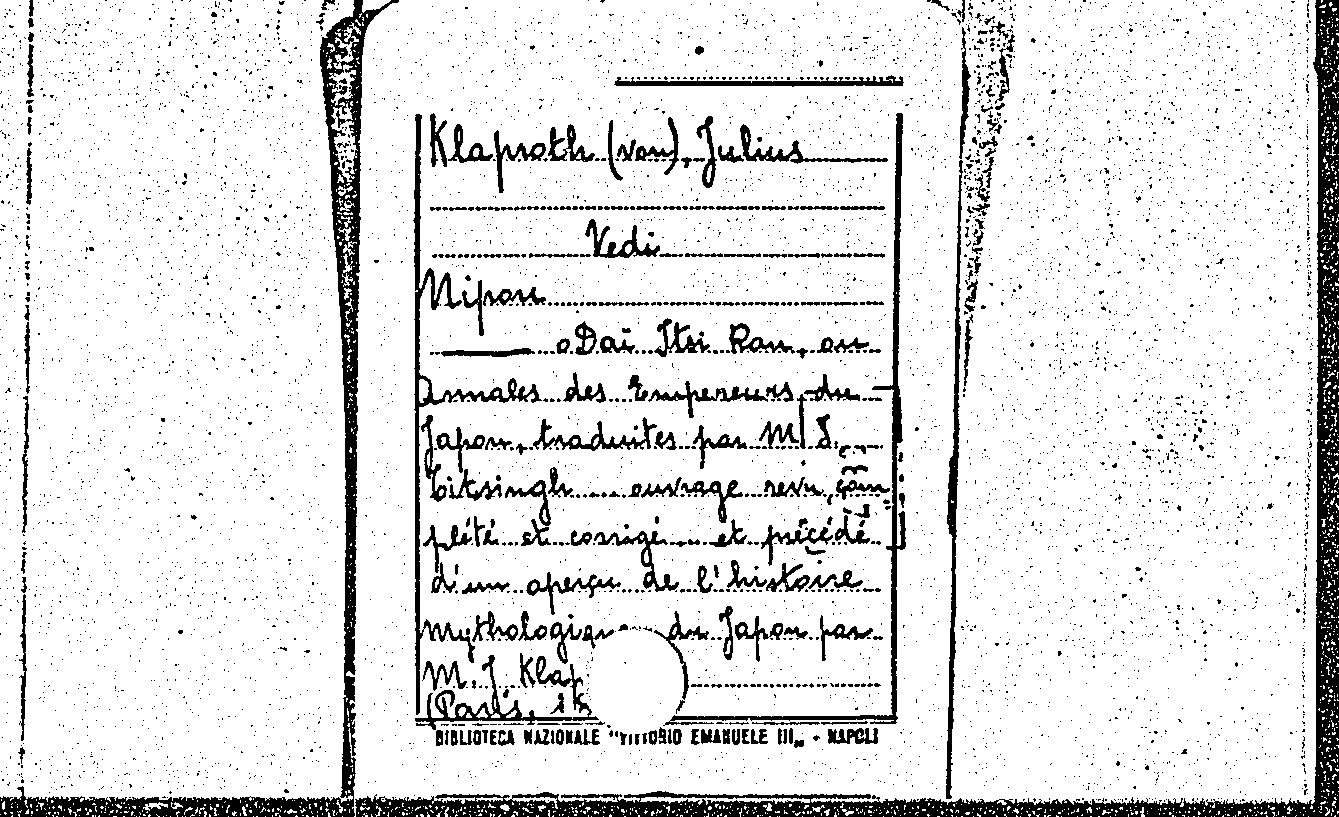 Klaproth (von), Julius
Vedi
Nipon
o Dai Itsi Ran, ou
Annales des Empereurs du
Japon, traduites par M. I.
Titsingh ... ouvrage revu, com
plété et corrigé ... et précédé
d'un aperçu de l'histoire
mythologique du Japon par
M. J. Klap
(Paris, 18
BIBLIOTECA NAZIONALE "VITTORIO EMANUELE III„ - NAPOLI